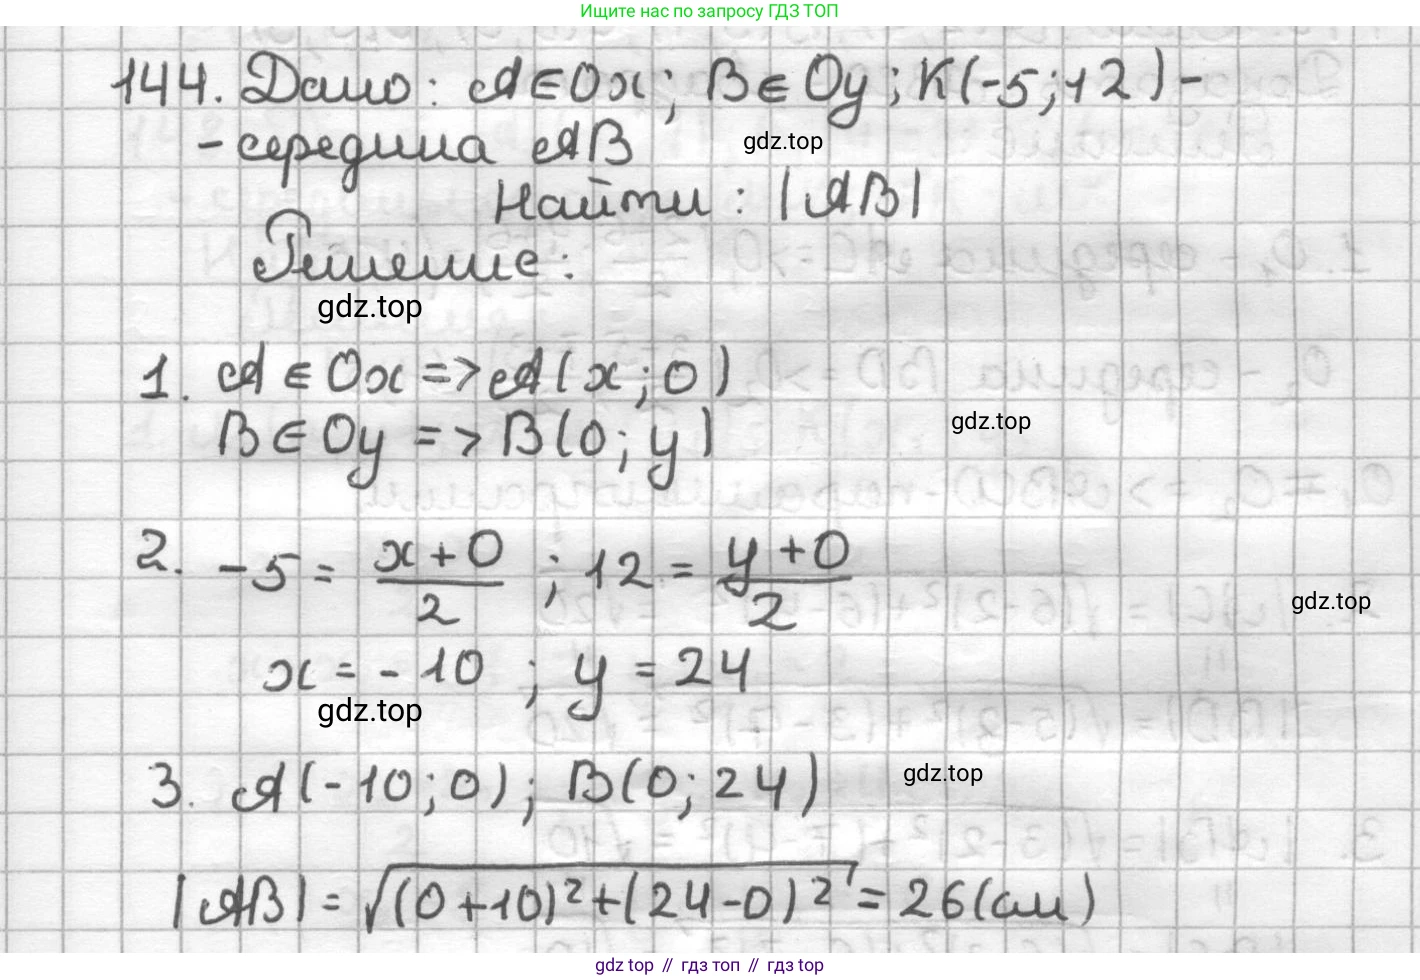 Ищите нас по запросу ГДЗ ТОП
144. Дано: A∈Ox; B∈Oy; K(-5;12) -
- середина AB
gdz.top
Найти: |AB|
Решение:
gdz.top
1. A∈Ox => A(x;0)
B∈Oy => B(0;y)
gdz.top
2. -5 = \frac{x+0}{2}; 12 = \frac{y+0}{2}
gdz.top
x = -10; y = 24
gdz.top
3. A(-10;0); B(0;24)
gdz.top
|AB| = \sqrt{(0+10)^2+(24-0)^2} = 26(см)
gdz.top // гдз топ // гдз top